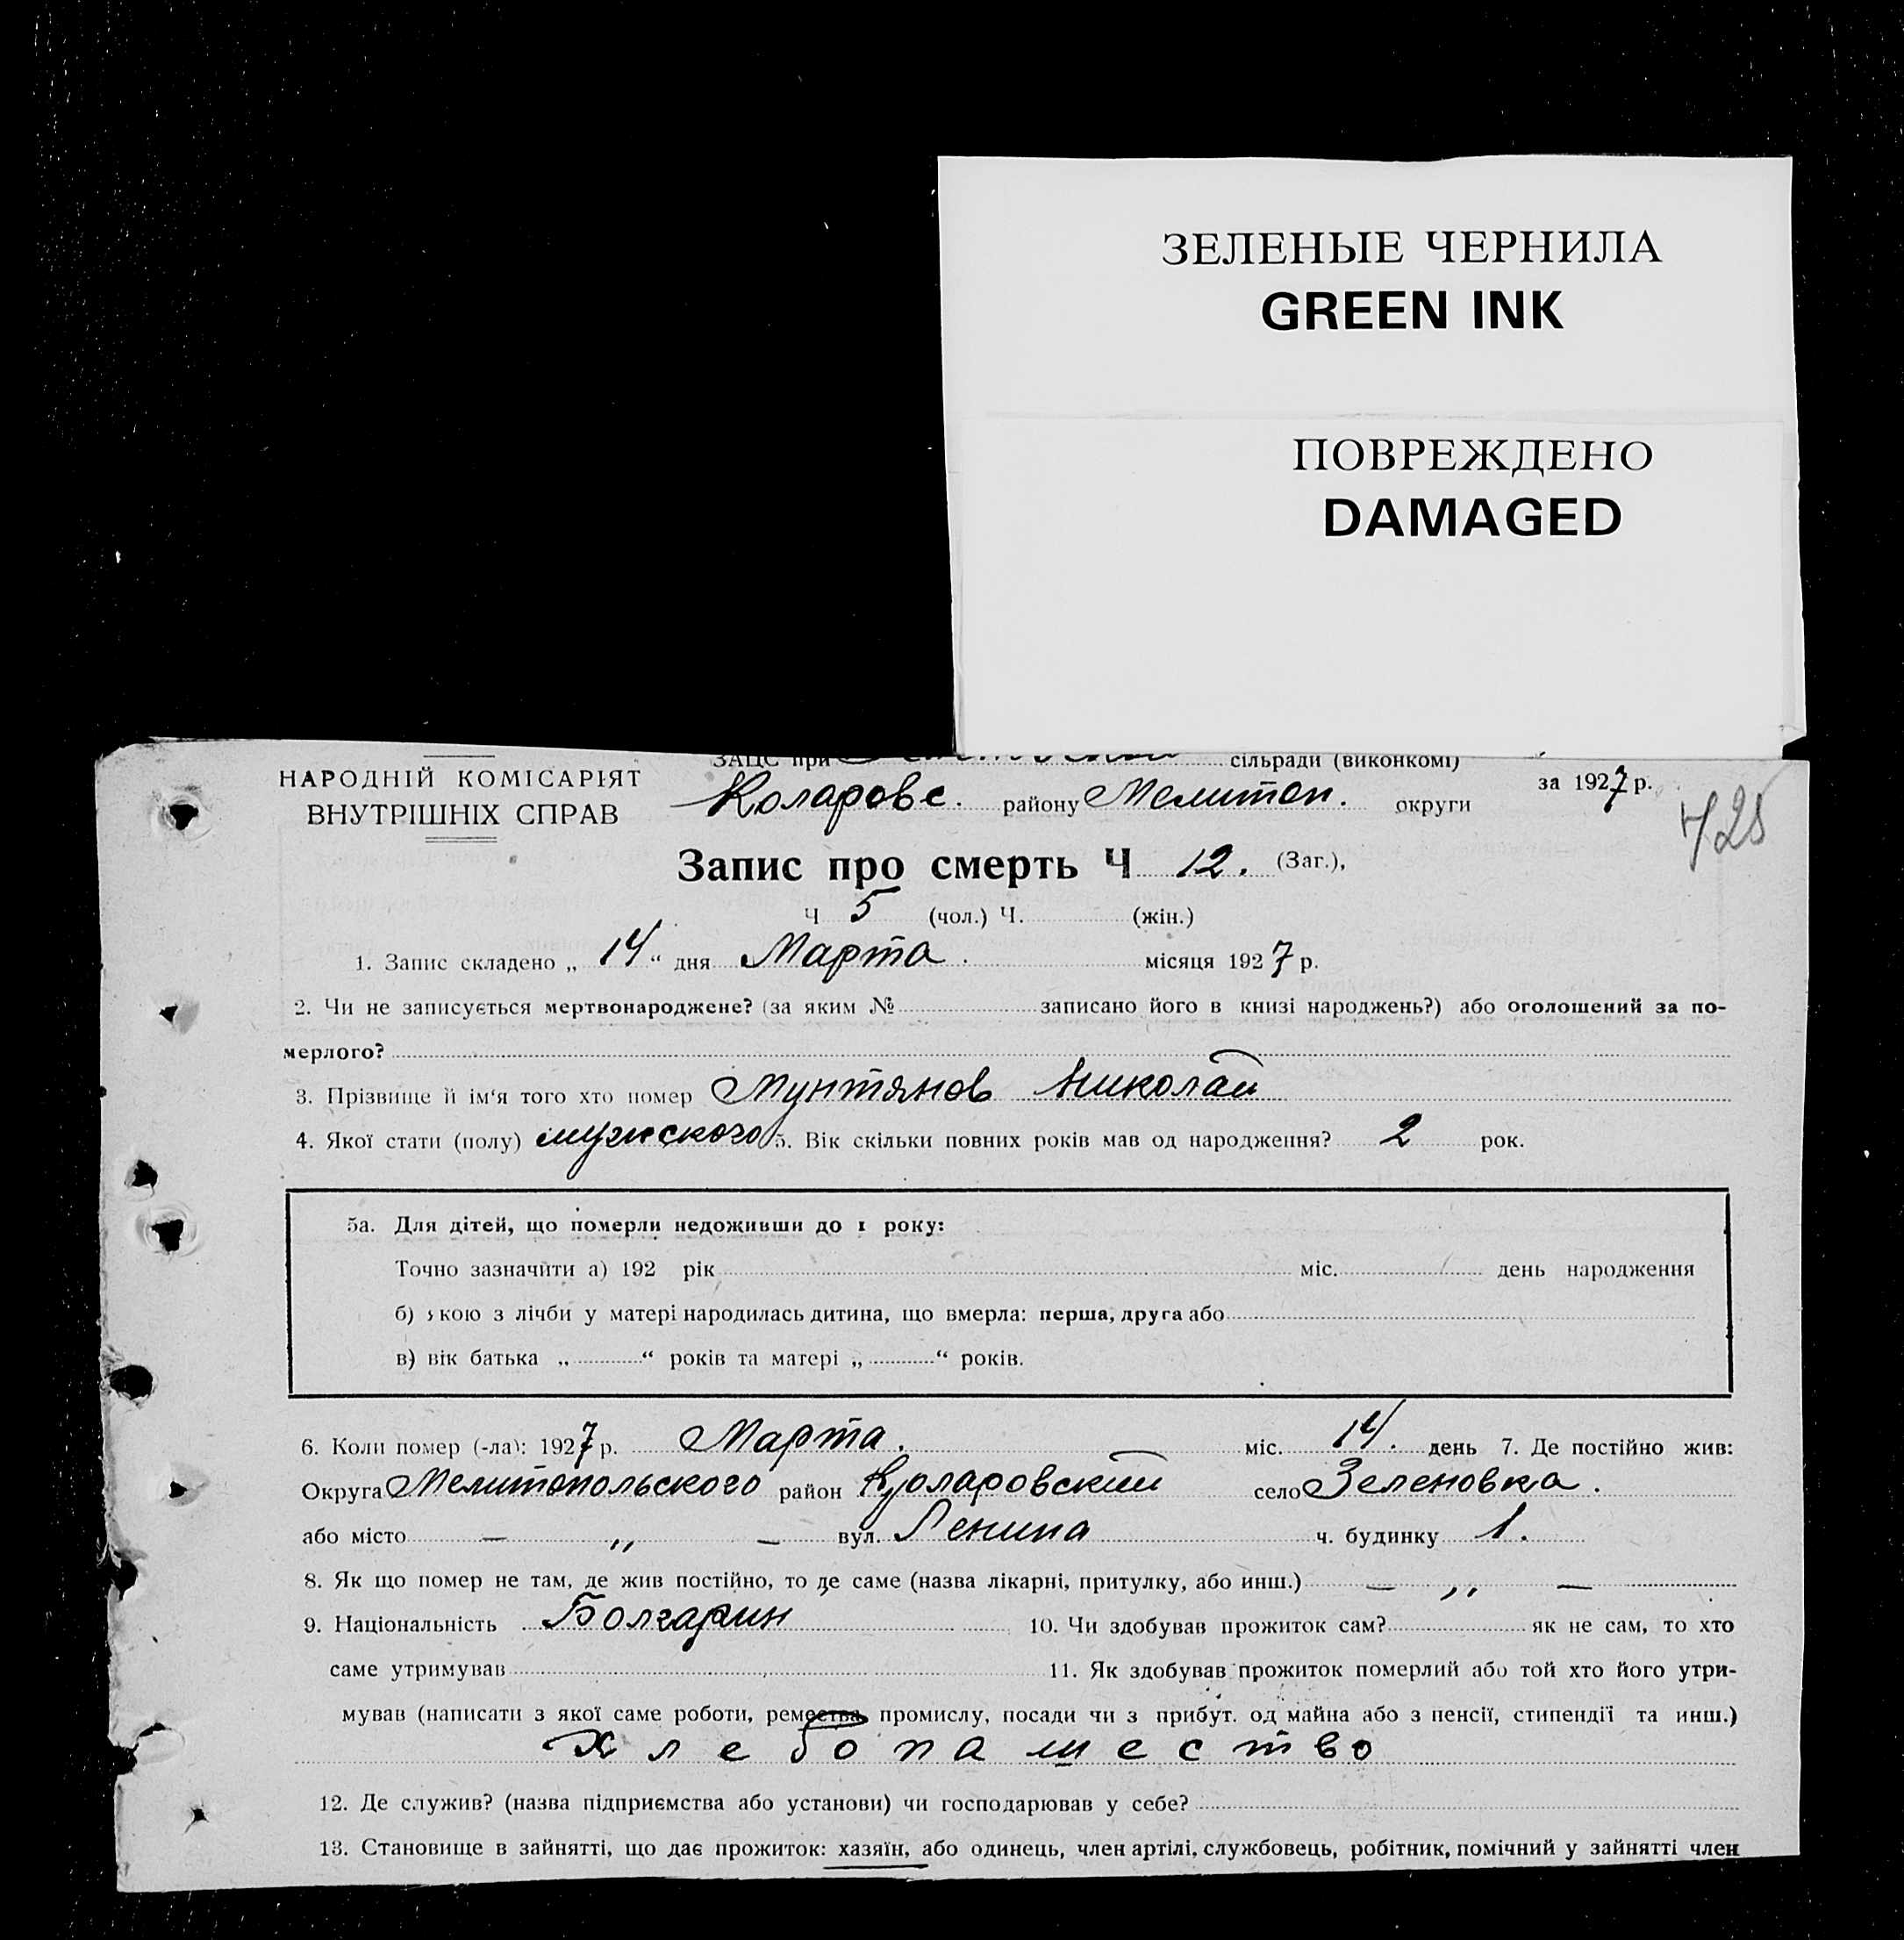 ЗЕЛЕНЫЕ ЧЕРНИЛА
GREEN INK
ПОВРЕЖДЕНО
DAMAGED
НАРОДНІЙ КОМІСАРІЯТ
ВНУТРІШНІХ СПРАВ
ЗАЦС при сільради (виконкомі)
Коларовс. району Мелитоп. округи
за 1927 р.
Запис про смерть Ч 12. (Заг.),
Ч 5 (чол.) Ч. (жін.)
1. Запис складено „ 14 “ дня Марта. місяця 1927 р.
2. Чи не записується мертвонароджене? (за яким № записано його в книзі народжень?) або оголошений за по-
мерлого?
3. Прізвище й ім'я того хто помер Мунтянов Николай
4. Якої стати (полу) мужского 5. Вік скільки повних років мав од народження? 2 рок.
5а. Для дітей, що померли недоживши до 1 року:
Точно зазначити а) 192 рік міс. день народження
б) якою з лічби у матері народилась дитина, що вмерла: перша, друга або
в) вік батька „ “ років та матері „ “ років.
6. Коли помер (-ла): 1927 р. Марта. міс. 14. день 7. Де постійно жив:
Округа Мелитопольского район Коларовский село Зеленовка.
або місто — „ — вул. Ленина ч. будинку 1.
8. Як що помер не там, де жив постійно, то де саме (назва лікарні, притулку, або инш.) — „ —
9. Національність Болгарин 10. Чи здобував прожиток сам? як не сам, то хто
саме утримував 11. Як здобував прожиток померлий або той хто його утри-
мував (написати з якої саме роботи, ремества промислу, посади чи з прибут. од майна або з пенсії, стипендії та инш.)
Хлебопашество
12. Де служив? (назва підприємства або установи) чи господарював у себе?
13. Становище в зайнятті, що дає прожиток: хазяїн, або одинець, член артілі, службовець, робітник, помічний у зайнятті член